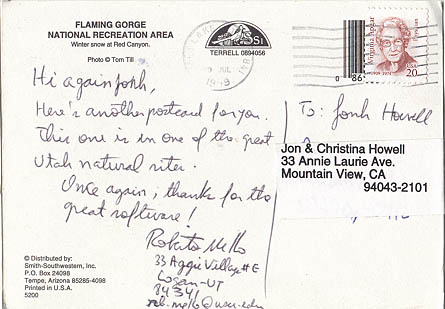 FLAMING GORGE
NATIONAL RECREATION AREA
Winter snow at Red Canyon.
Photo © Tom Till
TERRELL 0894056
1998
Virginia Apgar
USA
20
0 86
Hi again Jonh,
Here's another postcard for you.
This one is in one of the great
Utah natural sites.
Once again, thanks for the
great software!
Roberto Mello
33 Aggie Village # E
Logan - UT
84341
To: Jonh Howell
Jon & Christina Howell
33 Annie Laurie Ave.
Mountain View, CA
94043-2101
© Distributed by:
Smith-Southwestern, Inc.
P.O. Box 24098
Tempe, Arizona 85285-4098
Printed in U.S.A.
5200